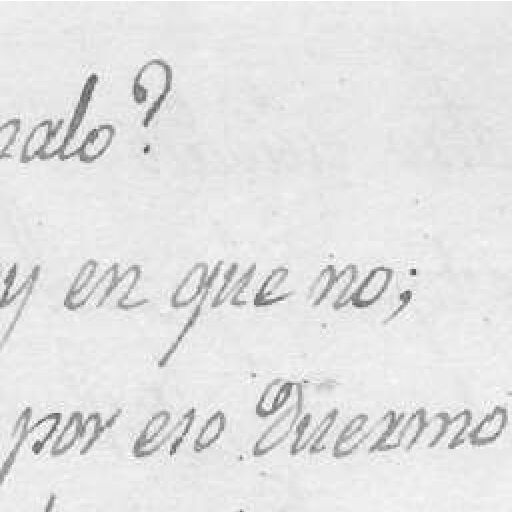 malo?
y en que no;
por eso Duermo